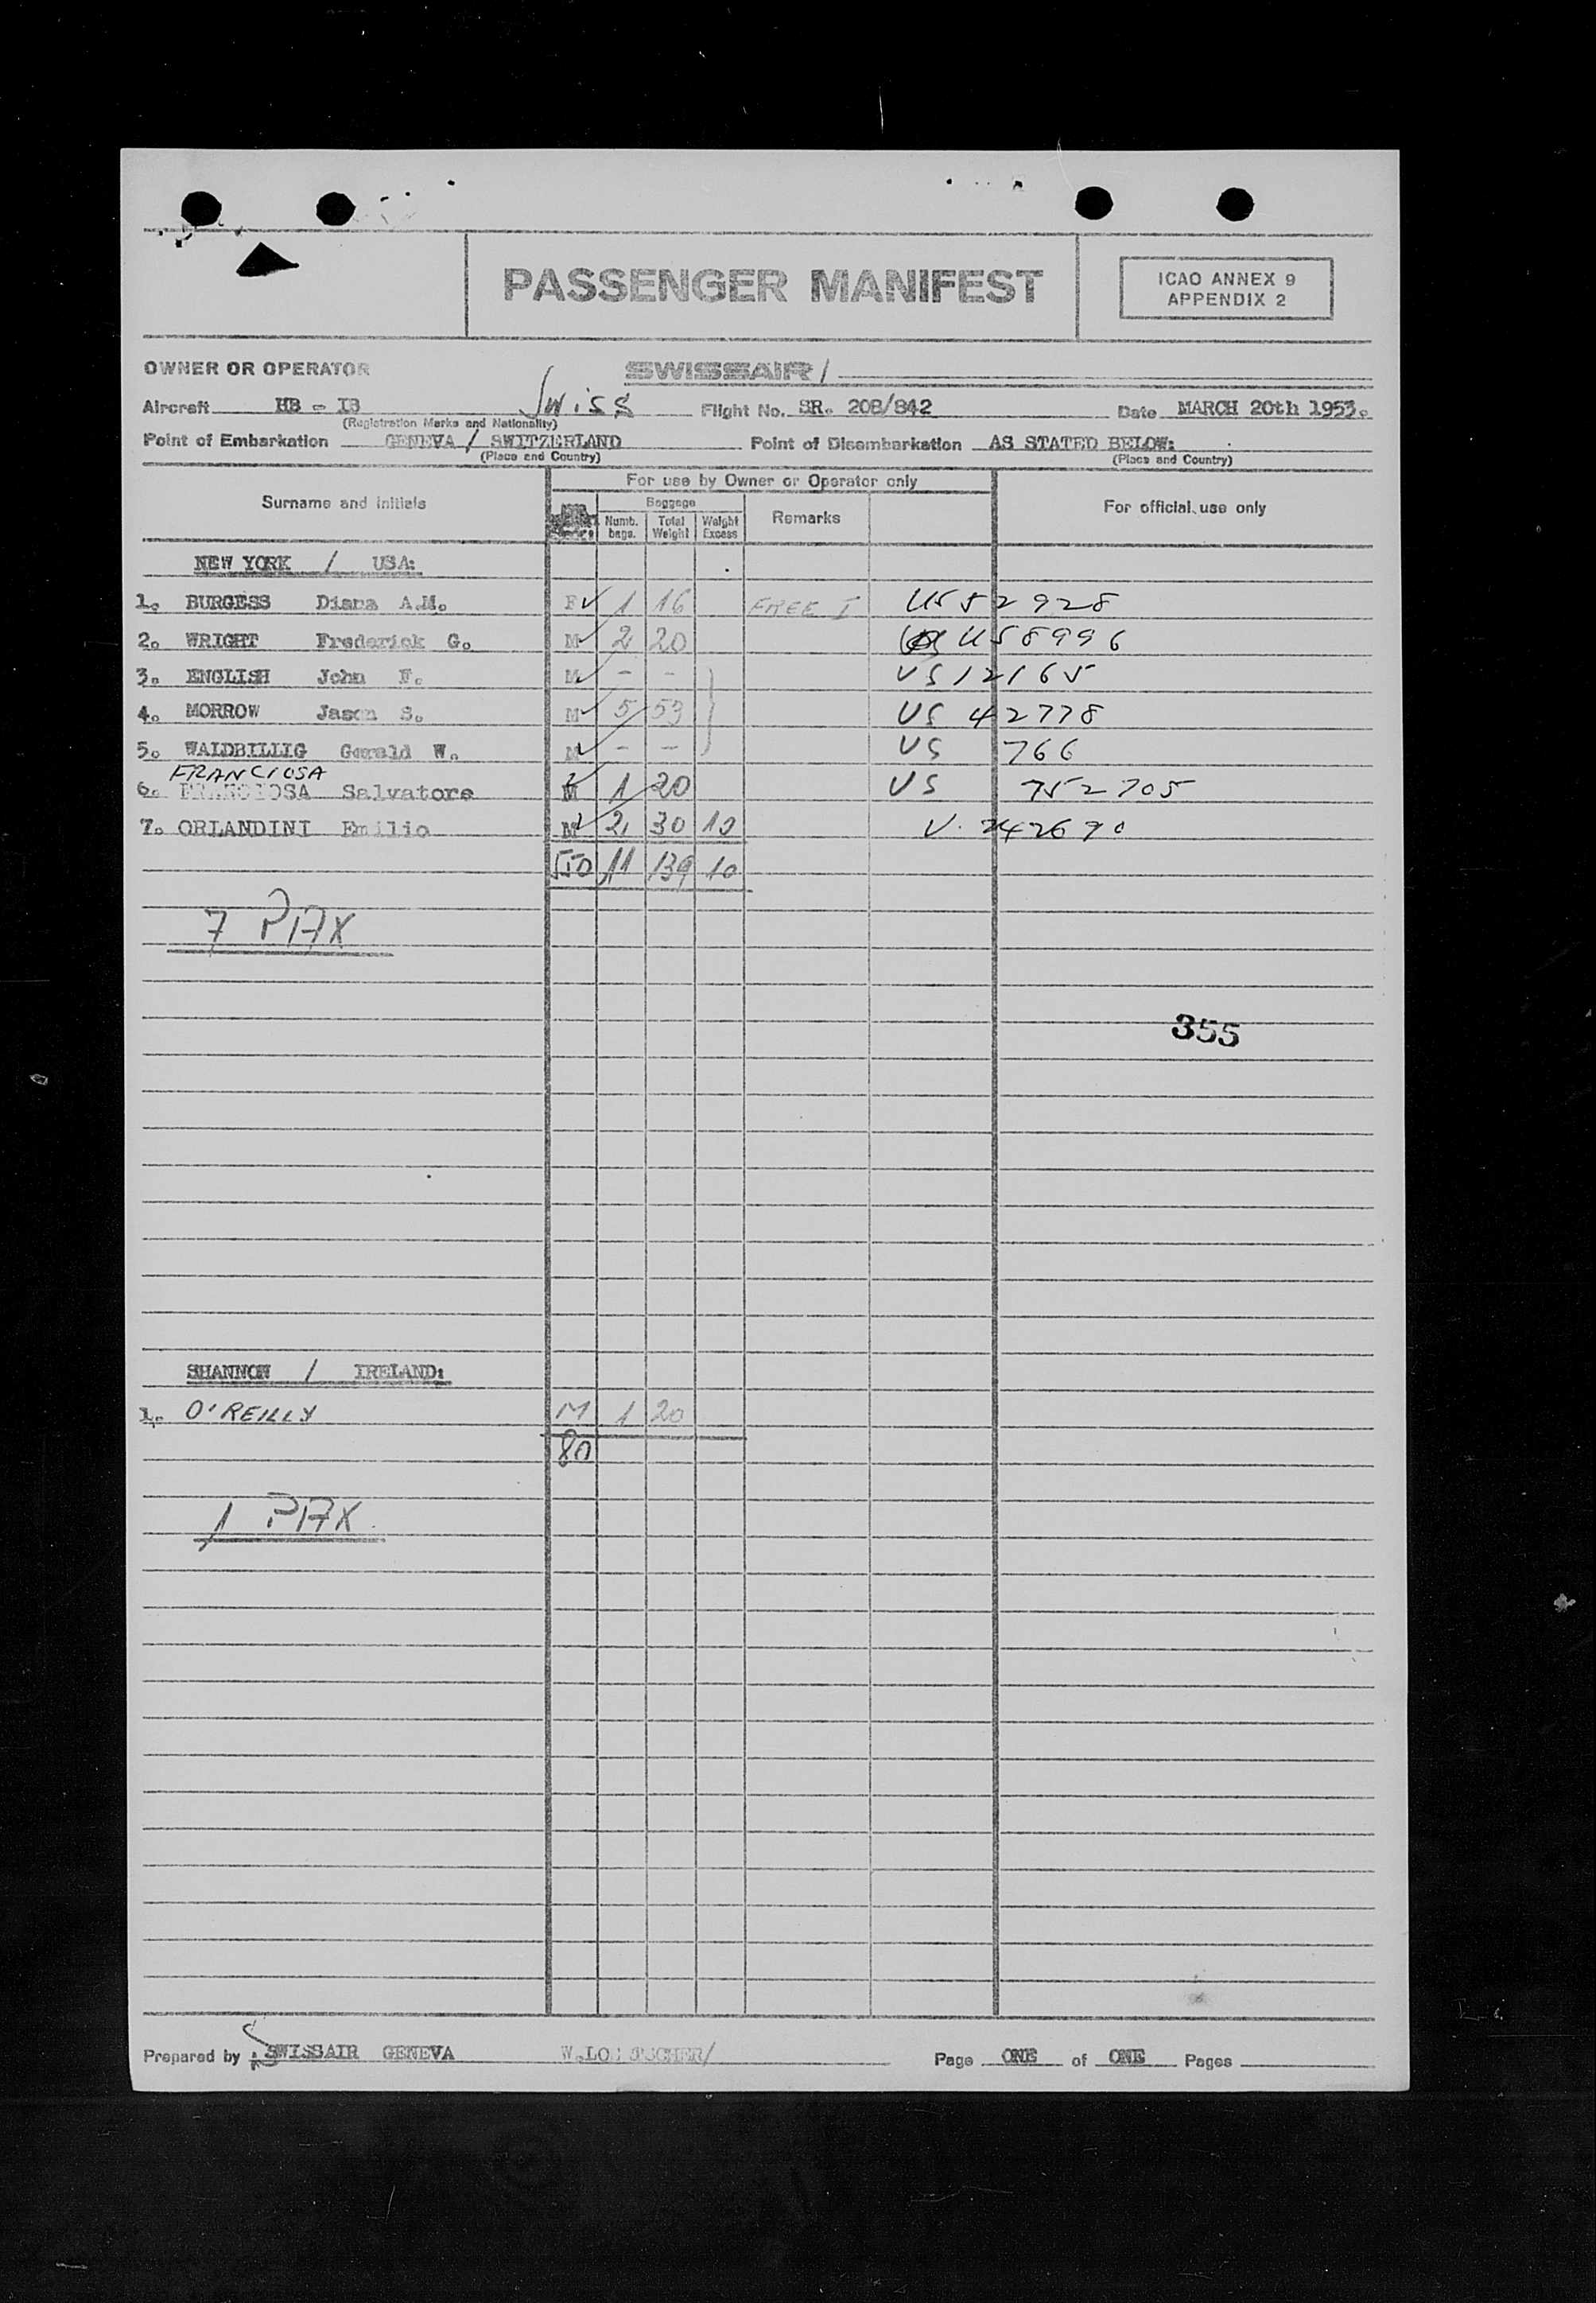 PASSENGER MANIFEST
ICAO ANNEX 9
APPENDIX 2
OWNER OR OPERATOR SWISSAIR/
Aircraft HB - IB Swiss Flight No. SR. 208/842 Date MARCH 20th 1953.
(Registration Marks and Nationality)
Point of Embarkation GENEVA / SWITZERLAND Point of Disembarkation AS STATED BELOW:
(Place and Country) (Place and Country)
For use by Owner or Operator only
Surname and initials Baggage Remarks For official use only
Numb. bags. Total Weight Weight Excess
NEW YORK / USA:
1. BURGESS Diana A.M. F 1 16 FREE I US 52928
2. WRIGHT Frederick G. M 2 20 US 8996
3. ENGLISH John F. M - - US 12165
4. MORROW Jason S. M 5 53 US 42778
5. WALDBILLIG Gerald W. M - - US 766
FRANCIOSA
6. Salvatore M 1 20 US 752705
7. ORLANDINI Emilio M 2 30 10 V. 242690
550 11 139 10
7 PAX
355
SHANNON / IRELAND:
1. O'REILLY M 1 20
80
1 PAX
Prepared by SWISSAIR GENEVA Page ONE of ONE Pages